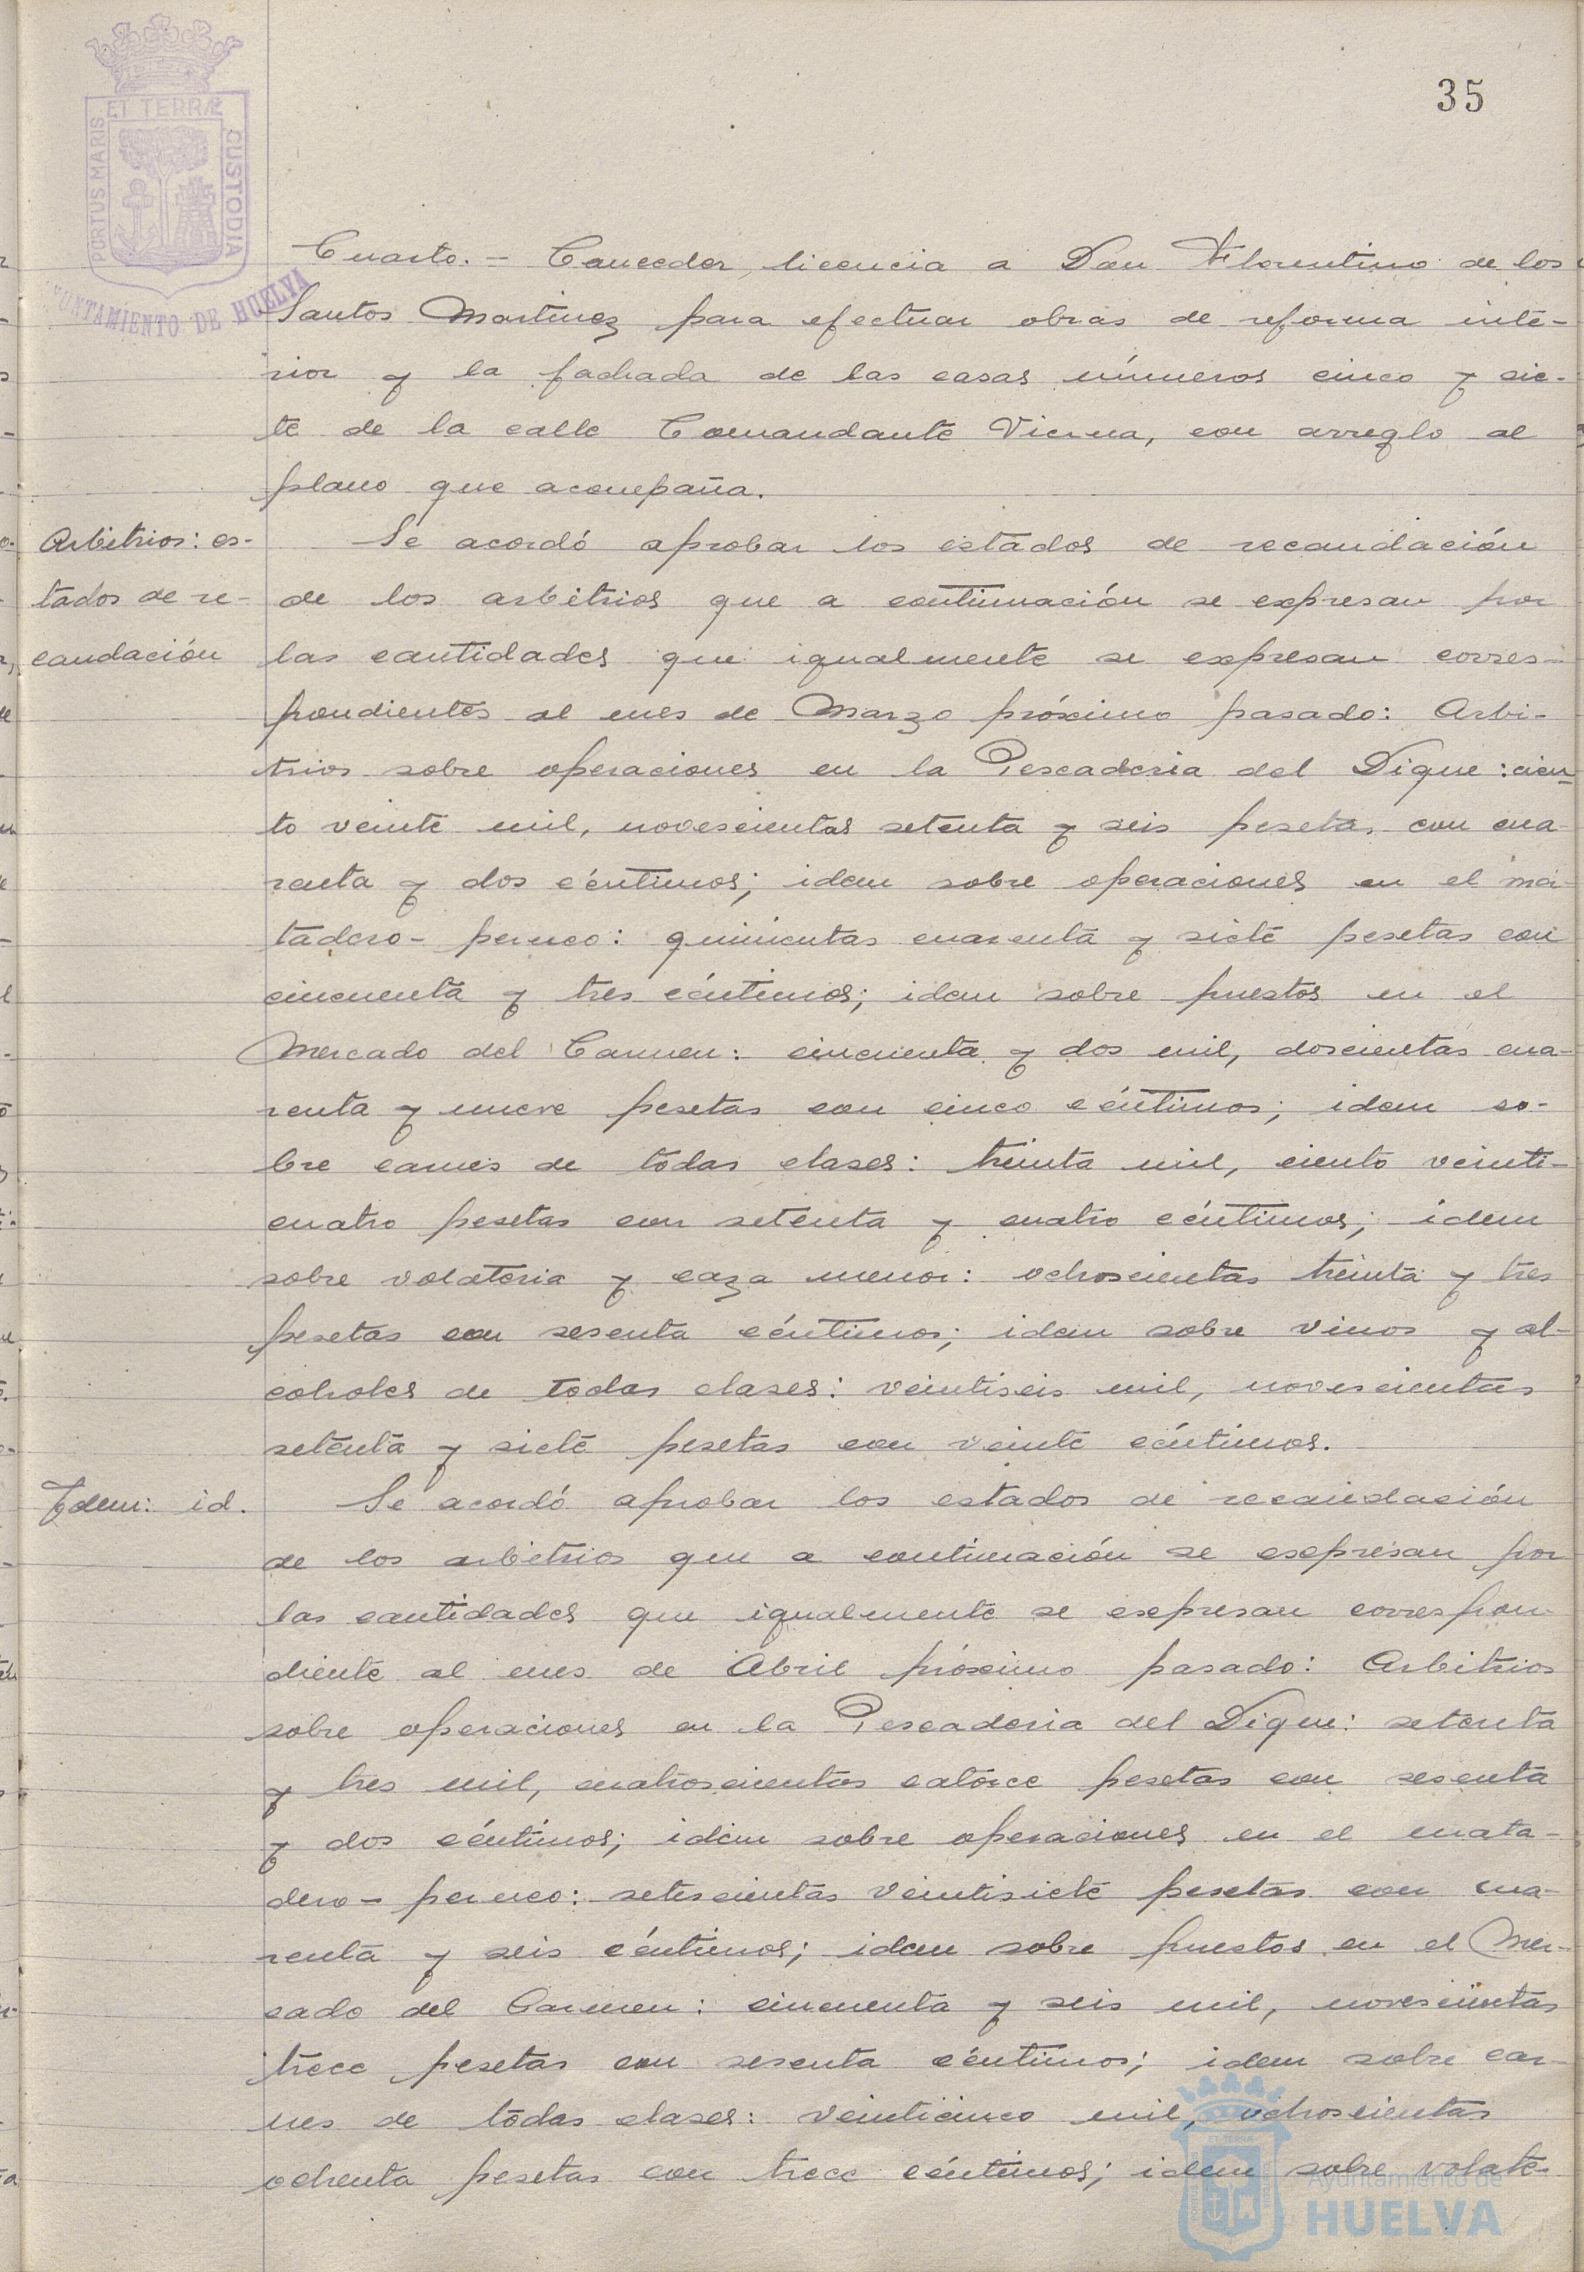 35
ET TERRÆ
PORTUS MARIS
CUSTODIA
AYUNTAMIENTO DE HUELVA
Cuarto. - Conceder licencia a Don Florentino de los
Santos Martinez para efectuar obras de reforma inte-
rior y la fachada de las casas números cinco y sie-
te de la calle Comandante Vierna, con arreglo al
plano que acompaña.
Arbitrios: es-
tados de re-
caudación
Se acordó aprobar los estados de recaudación
de los arbitrios que a continuación se expresan por
las cantidades que igualmente se expresan corres-
pondientes al mes de Marzo próximo pasado: Arbi-
trios sobre operaciones en la Pescaderia del Dique: cien-
to veinte mil, novescientas setenta y seis pesetas con cua-
renta y dos céntimos; idem sobre operaciones en el ma-
tadero- perneo: quinientas cuarenta y siete pesetas con
cincuenta y tres céntimos; idem sobre puestos en el
Mercado del Carmen: cincuenta y dos mil, doscientas cua-
renta y nueve pesetas con cinco céntimos; idem so-
bre carnes de todas clases: treinta mil, ciento veinti-
cuatro pesetas con setenta y cuatro céntimos; idem
sobre volateria y caza menor: ochoscientas treinta y tres
pesetas con sesenta céntimos; idem sobre vinos y al-
coholes de todas clases: veintiseis mil, novescientas
setenta y siete pesetas con veinte céntimos.
Idem: id.
Se acordó aprobar los estados de recaudación
de los arbitrios que a continuación se expresan por
las cantidades que igualmente se expresan correspon-
diente al mes de Abril próximo pasado: Arbitrios
sobre operaciones en la Pescaderia del Dique: setenta
y tres mil, cuatroscientas catorce pesetas con sesenta
y dos céntimos; idem sobre operaciones en el mata-
dero- perneo: setescientas veintisiete pesetas con cua-
renta y seis céntimos; idem sobre puestos en el Mer-
cado del Carmen: cincuenta y seis mil, novescientas
trece pesetas con sesenta céntimos; idem sobre car-
nes de todas clases: veinticinco mil, ochoscientas
ochenta pesetas con trece céntimos; idem sobre volate-
Ayuntamiento de
HUELVA